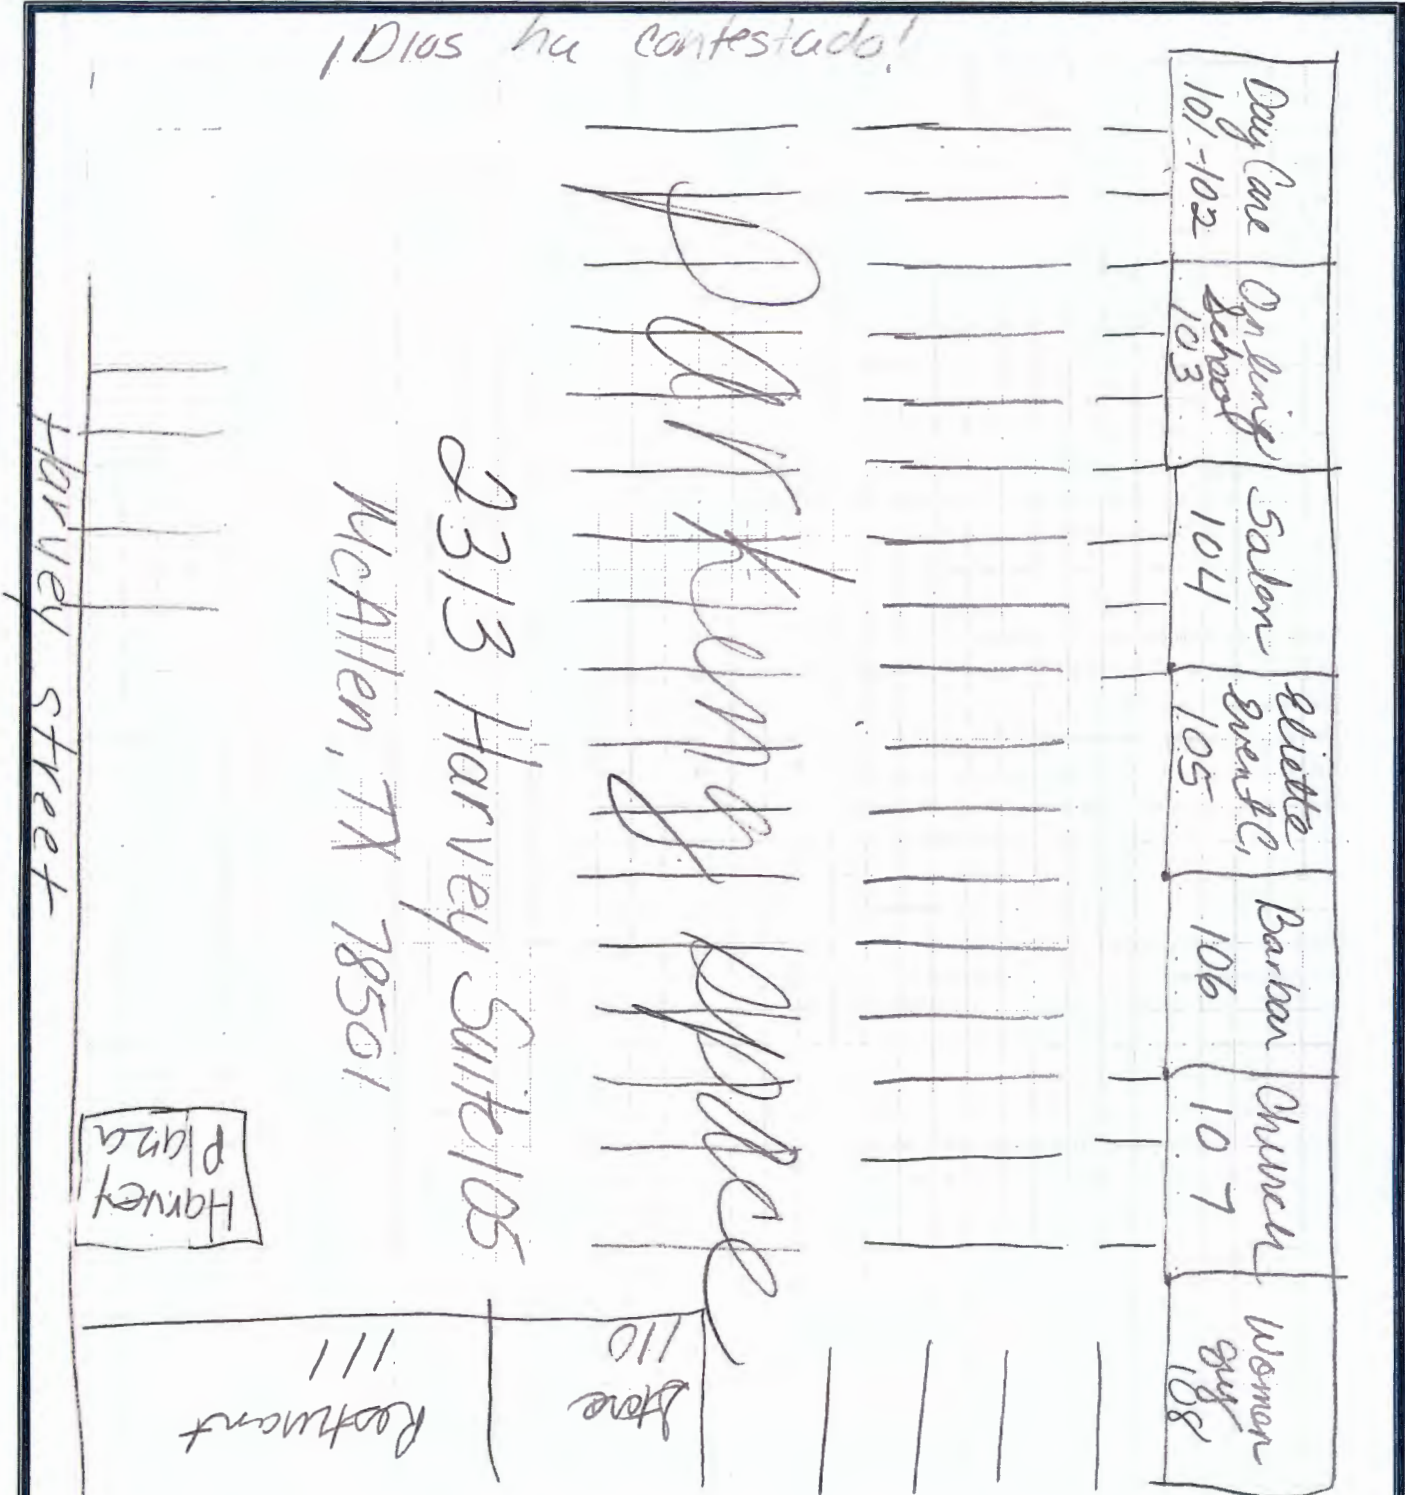 ¡Dios ha contestado!
Day Care
101-102
Online
School
103
Salon
104
Eliette
Event C,
105
Barbar
106
Church
107
Women
gy
108
Parking Space
2313 Harvey Suite 105
McAllen, TX 78501
Harvey Street
Harvey
Plaza
Store
110
Resturant
111